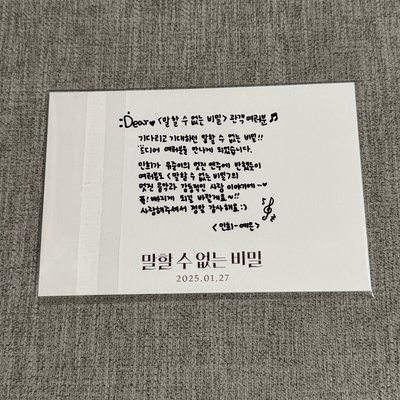 :Dear♥ <말할 수 없는 비밀> 관객 여러분♬
기다리고 기대하신 말할 수 없는 비밀!!
드디어 여러분을 만나게 되었습니다.
인희가 유준이의 멋진 연주에 반했듯이
여러분도 <말할 수 없는 비밀>의
멋진 음악과 감동적인 사랑 이야기에~♥
푹! 빠지게 되길 바랄게요~!!
사랑해주셔서 정말 감사해요 :)
<인희-예은>
말할 수 없는 비밀
2025.01.27